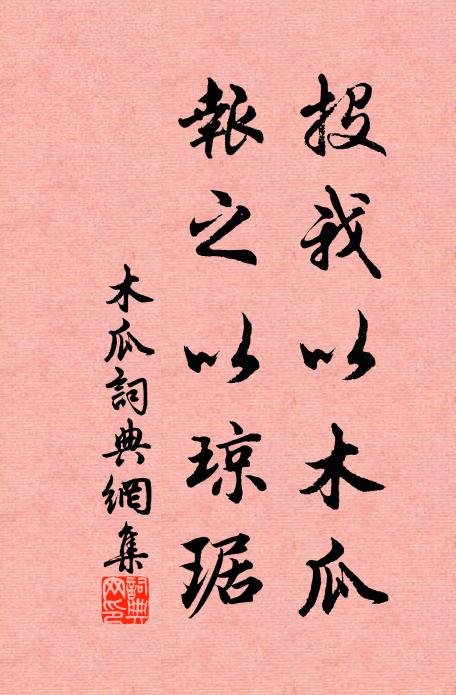 投我以木瓜
報之以琼琚
木瓜詞典網集
詞典网印